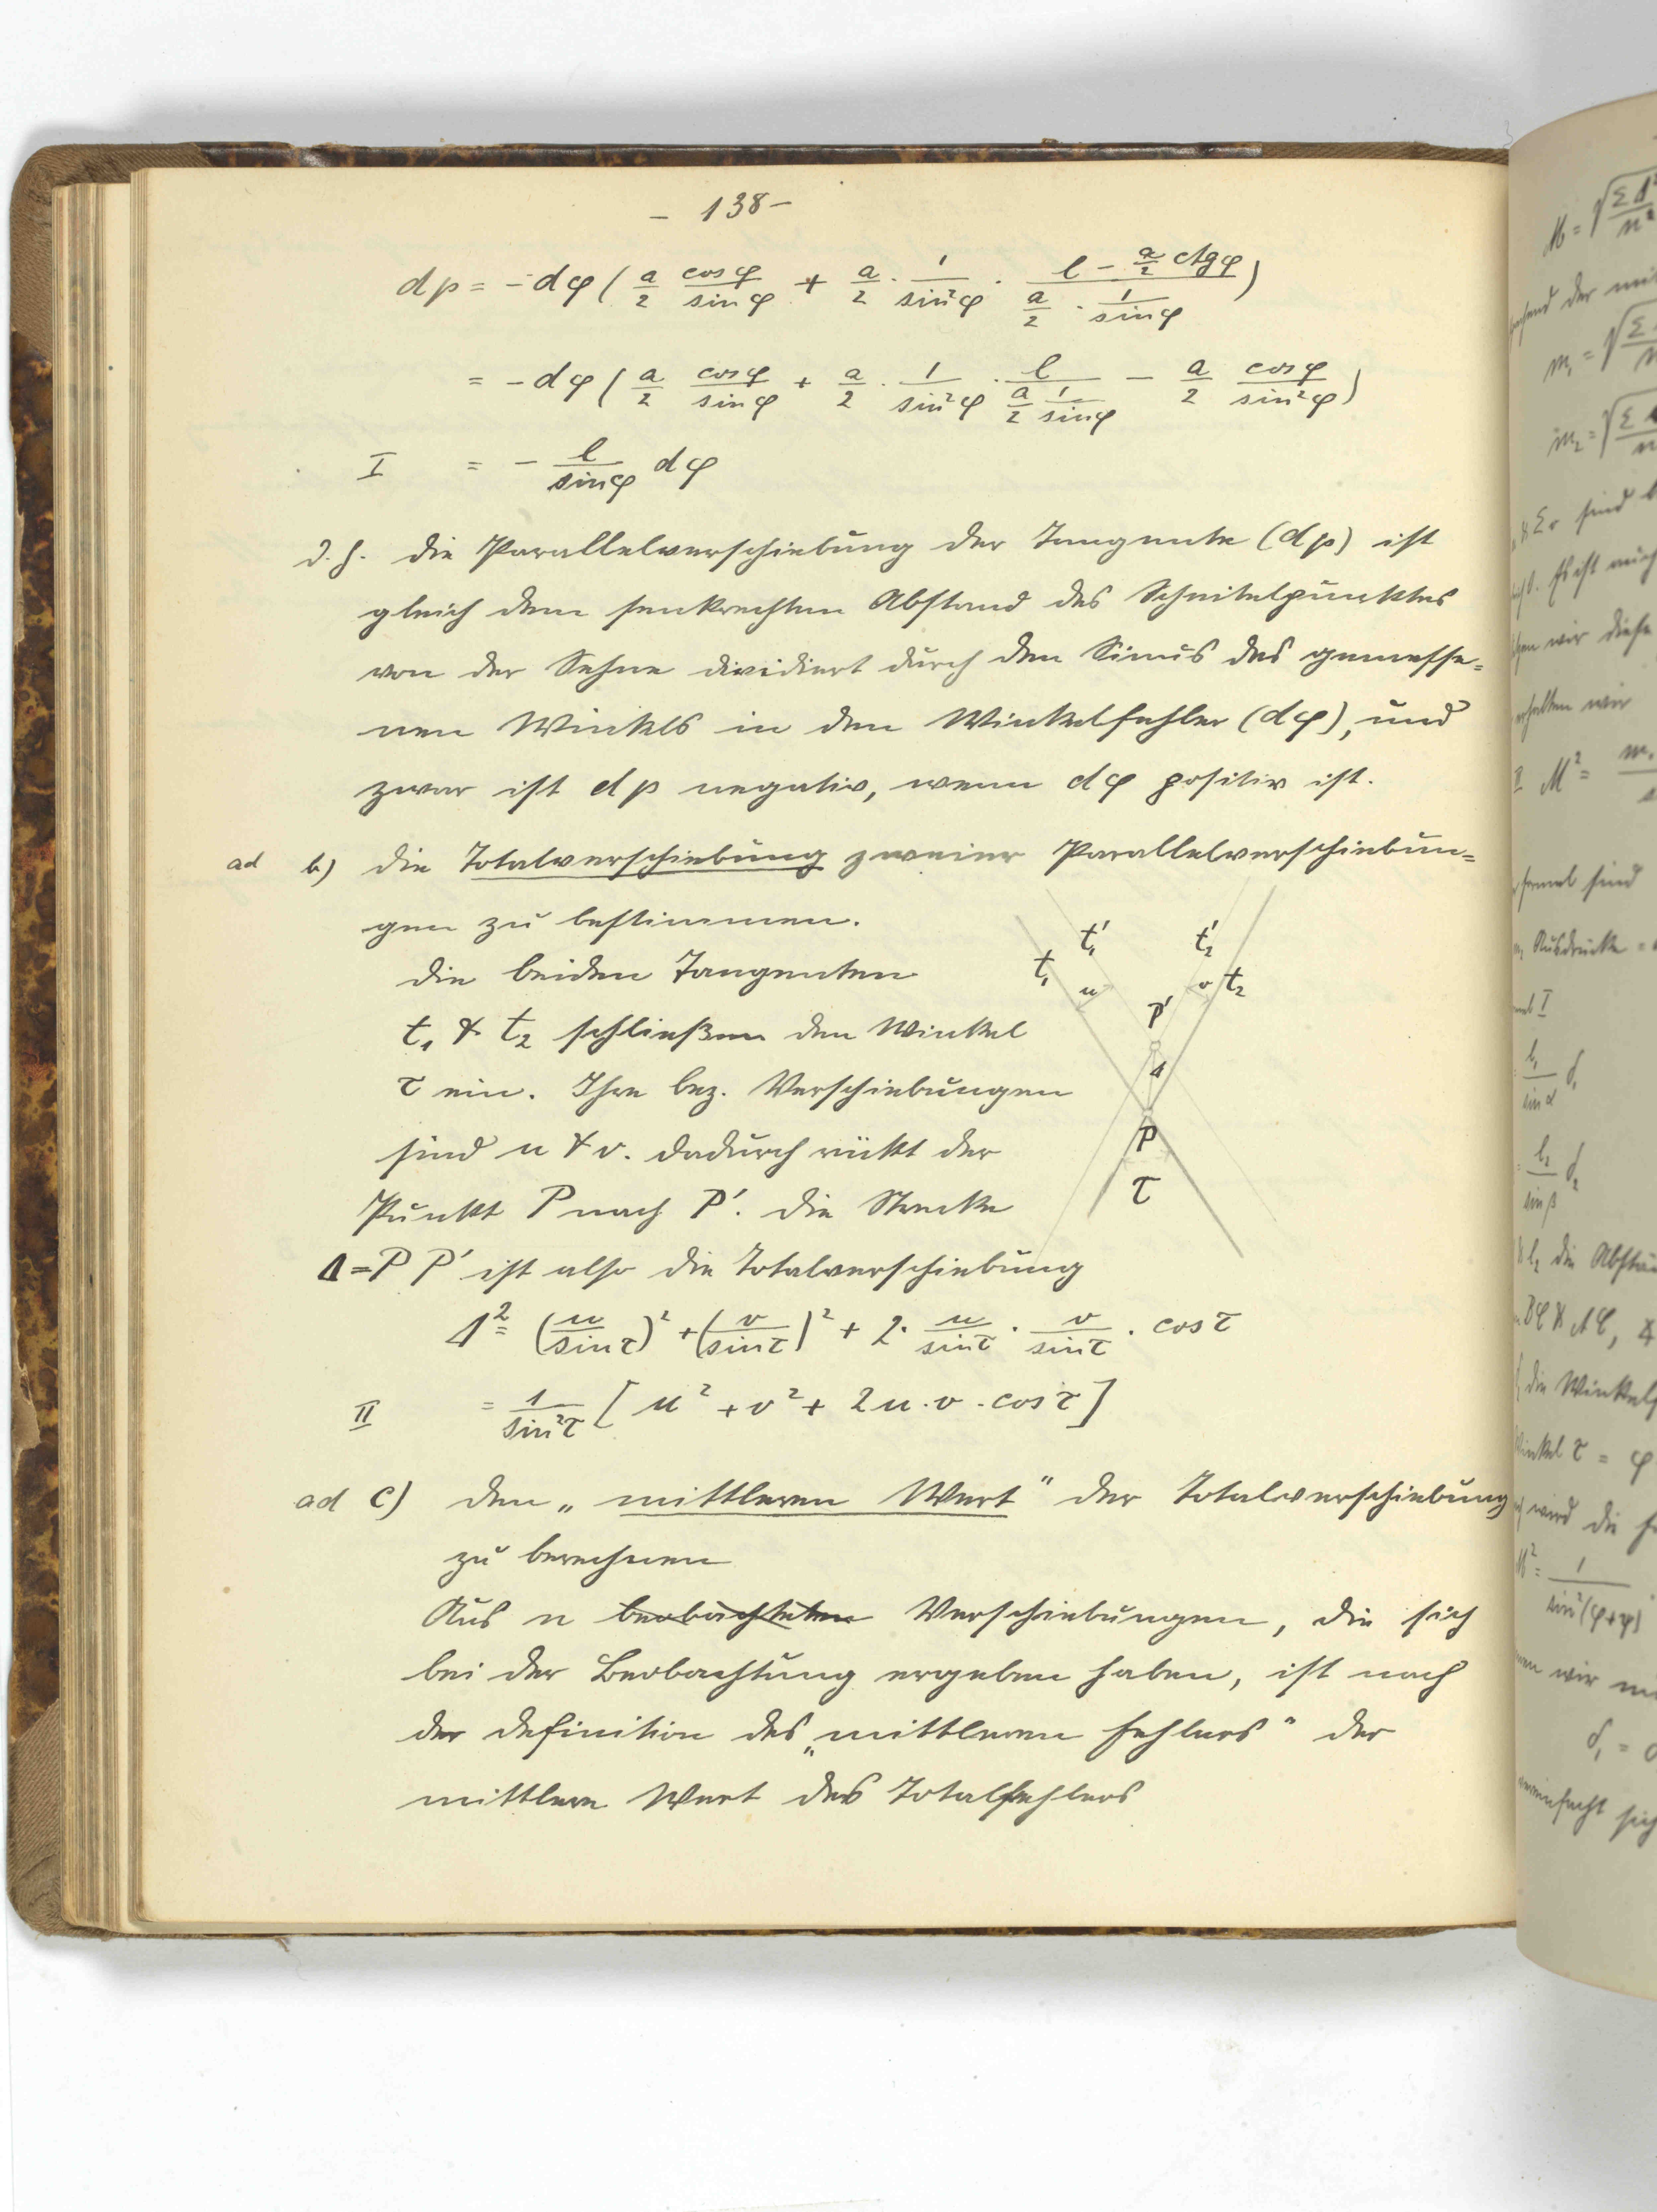 - 138 -
dp = - dφ ( a/2 cosφ/sinφ + a/2 · 1/sin²φ · (l - a/2 ctgφ)/(a/2 · 1/sinφ) )
= - dφ ( a/2 cosφ/sinφ + a/2 · 1/sin²φ · l/(a/2 1/sinφ) - a/2 cosφ/sin²φ )
I = - l/sinφ dφ
d. h. die Parallelverschiebung der Tangente (dp) ist
gleich dem senkrechten Abstand des Scheitelpunktes
von der Sehne dividiert durch den Sinus des gemesse=
nen Winkels in den Winkelfehler (dφ), und
zwar ist dp negativ, wenn dφ positiv ist.
ad b) die Totalverschiebung zweier Parallelverschiebun=
gen zu bestimmen.
die beiden Tangenten
t₁ & t₂ schließen den Winkel
τ ein. Ihre bez. Verschiebungen
sind u & v. dadurch rückt der
Punkt P nach P'. die Strecke
Δ = P P' ist also die Totalverschiebung
t₁ t₁' t₂' t₂
u v
P'
Δ
P
τ
Δ² = (u/sinτ)² + (v/sinτ)² + 2 · u/sinτ · v/sinτ · cosτ
II = 1/sin²τ [ u² + v² + 2u · v · cosτ ]
ad c) den „mittleren Wert" der Totalverschiebung
zu berechnen
Aus n beobachteten Verschiebungen, die sich
bei der Beobachtung ergeben haben, ist nach
der Definition des „mittleren Fehlers" der
mittlere Wert des Totalfehlers
M = √ΣΔ²/n²
der mit
m₁ = √Σ
m₂ = √Σ
sind
Es ist
wir diese
erhalten wir
II M² = m
formel sind
Ausdrücke =
I
l₁/sin α δ₁
l₂/sin β δ₂
& l₂ die Abstän
die Winkelf
Winkel τ = φ
wird die
M² = 1/sin²(φ+ψ)
wir
δ₁ =
vereinfacht sich